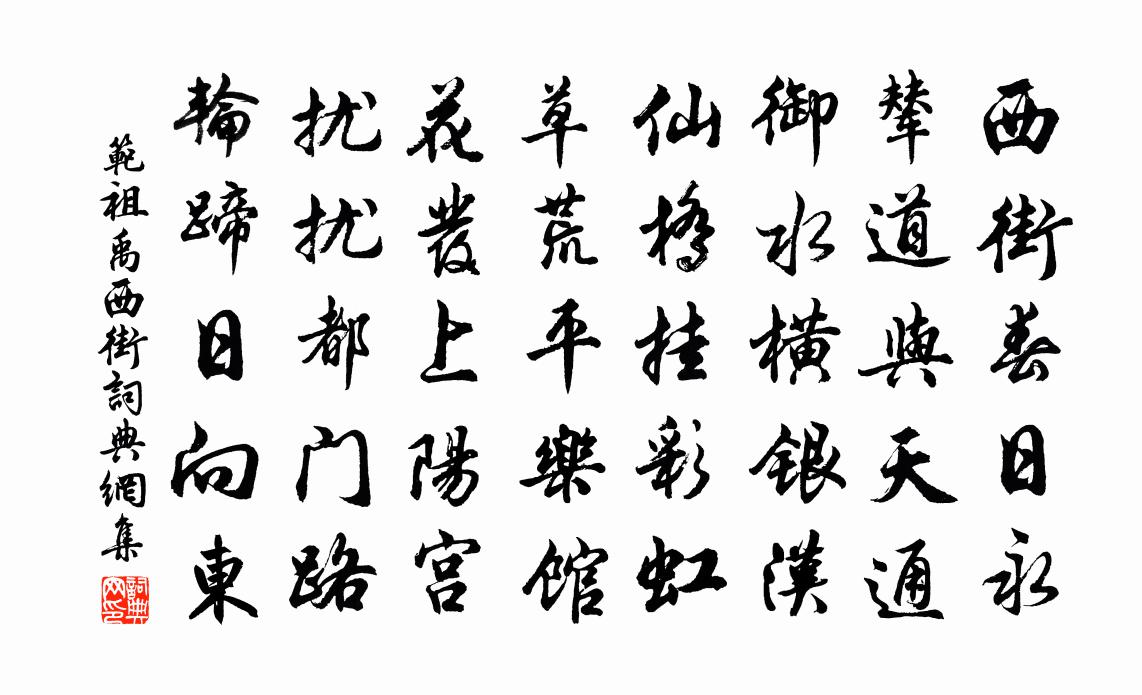 西街春日永
輦道與天通
御水橫銀漢
仙橋挂彩虹
草荒平樂館
花發上陽宮
擾擾都门路
輪蹄日向東
範祖禹西街詞典網集
詞典网印